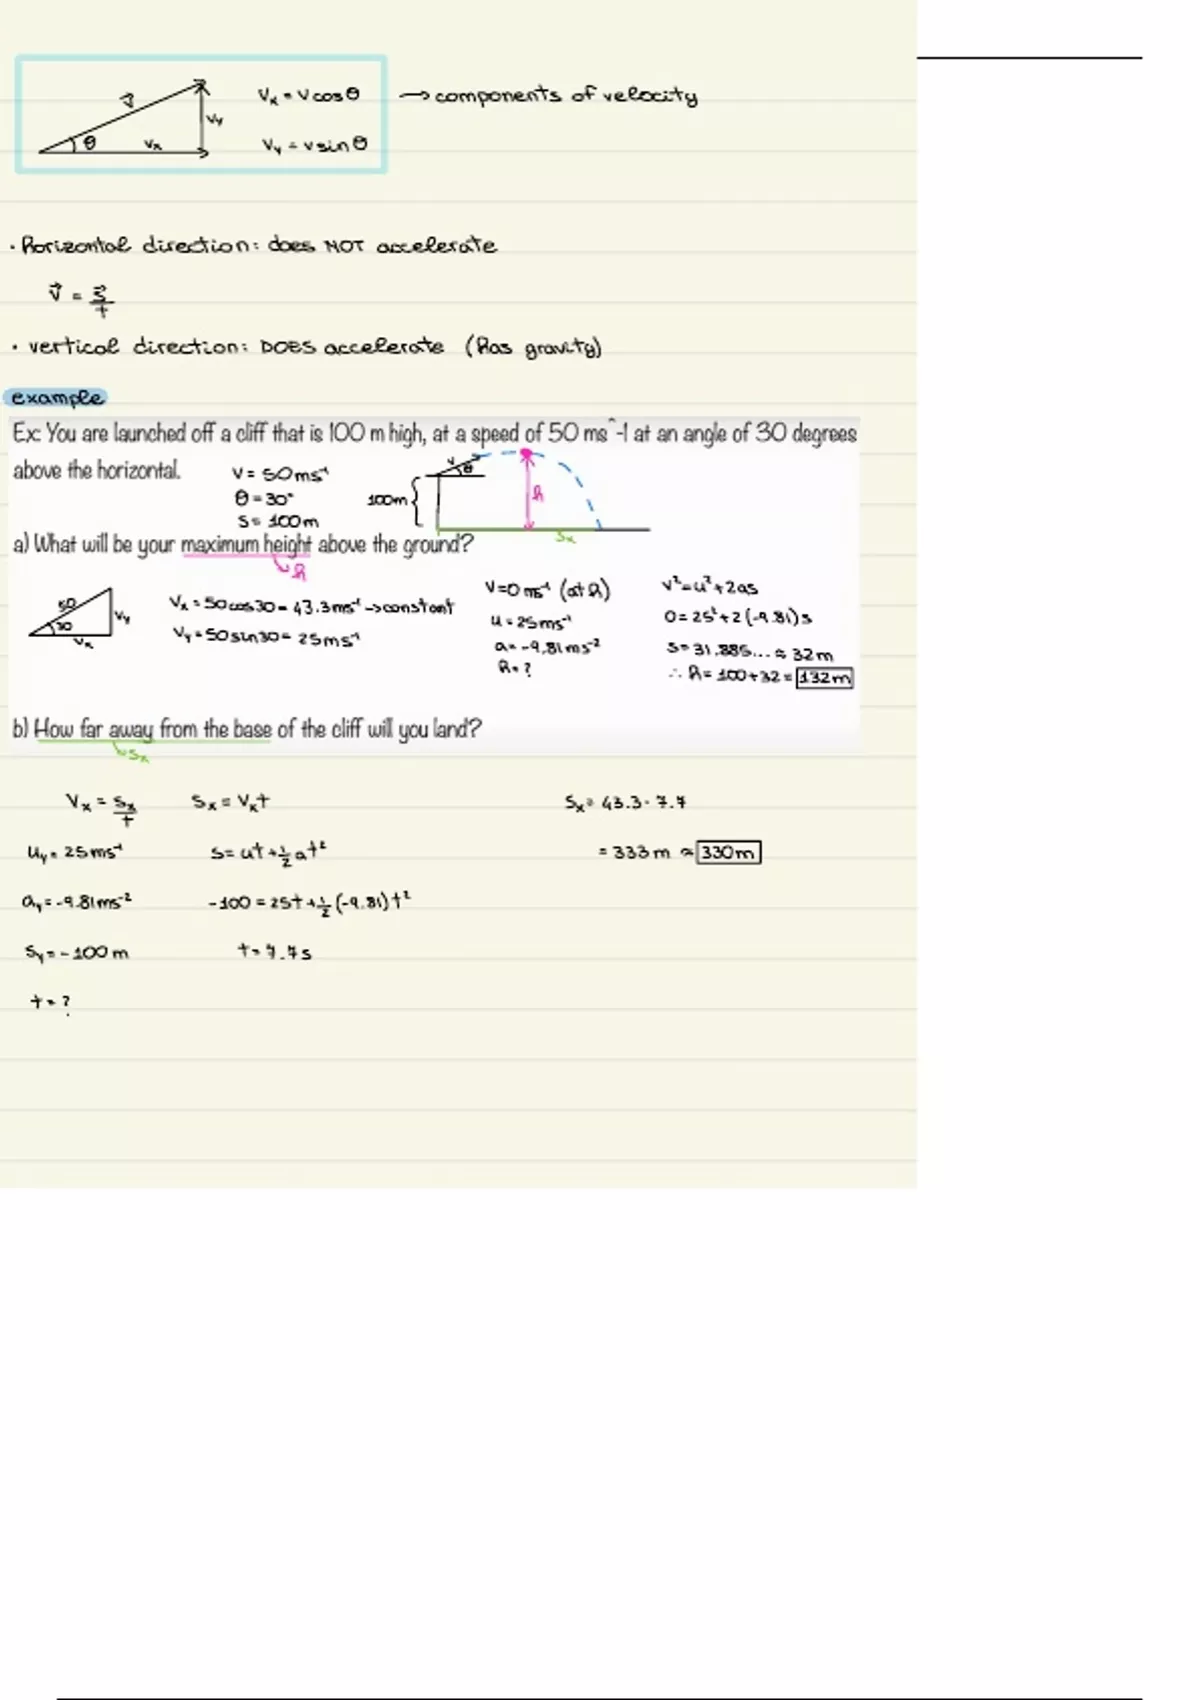 v⃗ vy θ vx
vx = v cosθ → components of velocity
vy = v sinθ
· horizontal direction: does NOT accelerate
v⃗ = s⃗/t
· vertical direction: DOES accelerate (has gravity)
example
Ex: You are launched off a cliff that is 100 m high, at a speed of 50 ms^-1 at an angle of 30 degrees
above the horizontal.
v = 50ms⁻¹
θ = 30°
s = 100m
v θ
100m
h
sx
a) What will be your maximum height above the ground?
h
50 30 vx vy
vx = 50cos30 = 43.3ms⁻¹ → constant
vy = 50sin30 = 25ms⁻¹
v=0ms⁻¹ (at h)
u = 25ms⁻¹
a = -9.81ms⁻²
h = ?
v² = u² + 2as
0 = 25² + 2(-9.81)s
s = 31.885... ≈ 32m
∴ h = 100+32 = 132m
b) How far away from the base of the cliff will you land?
sx
vx = sx/t
sx = vxt
uy = 25ms⁻¹
s = ut + ½at²
ay = -9.81ms⁻²
-100 = 25t + ½(-9.81)t²
sy = -100m
t = 7.7s
t = ?
sx = 43.3 · 7.7
= 333m ≈ 330m